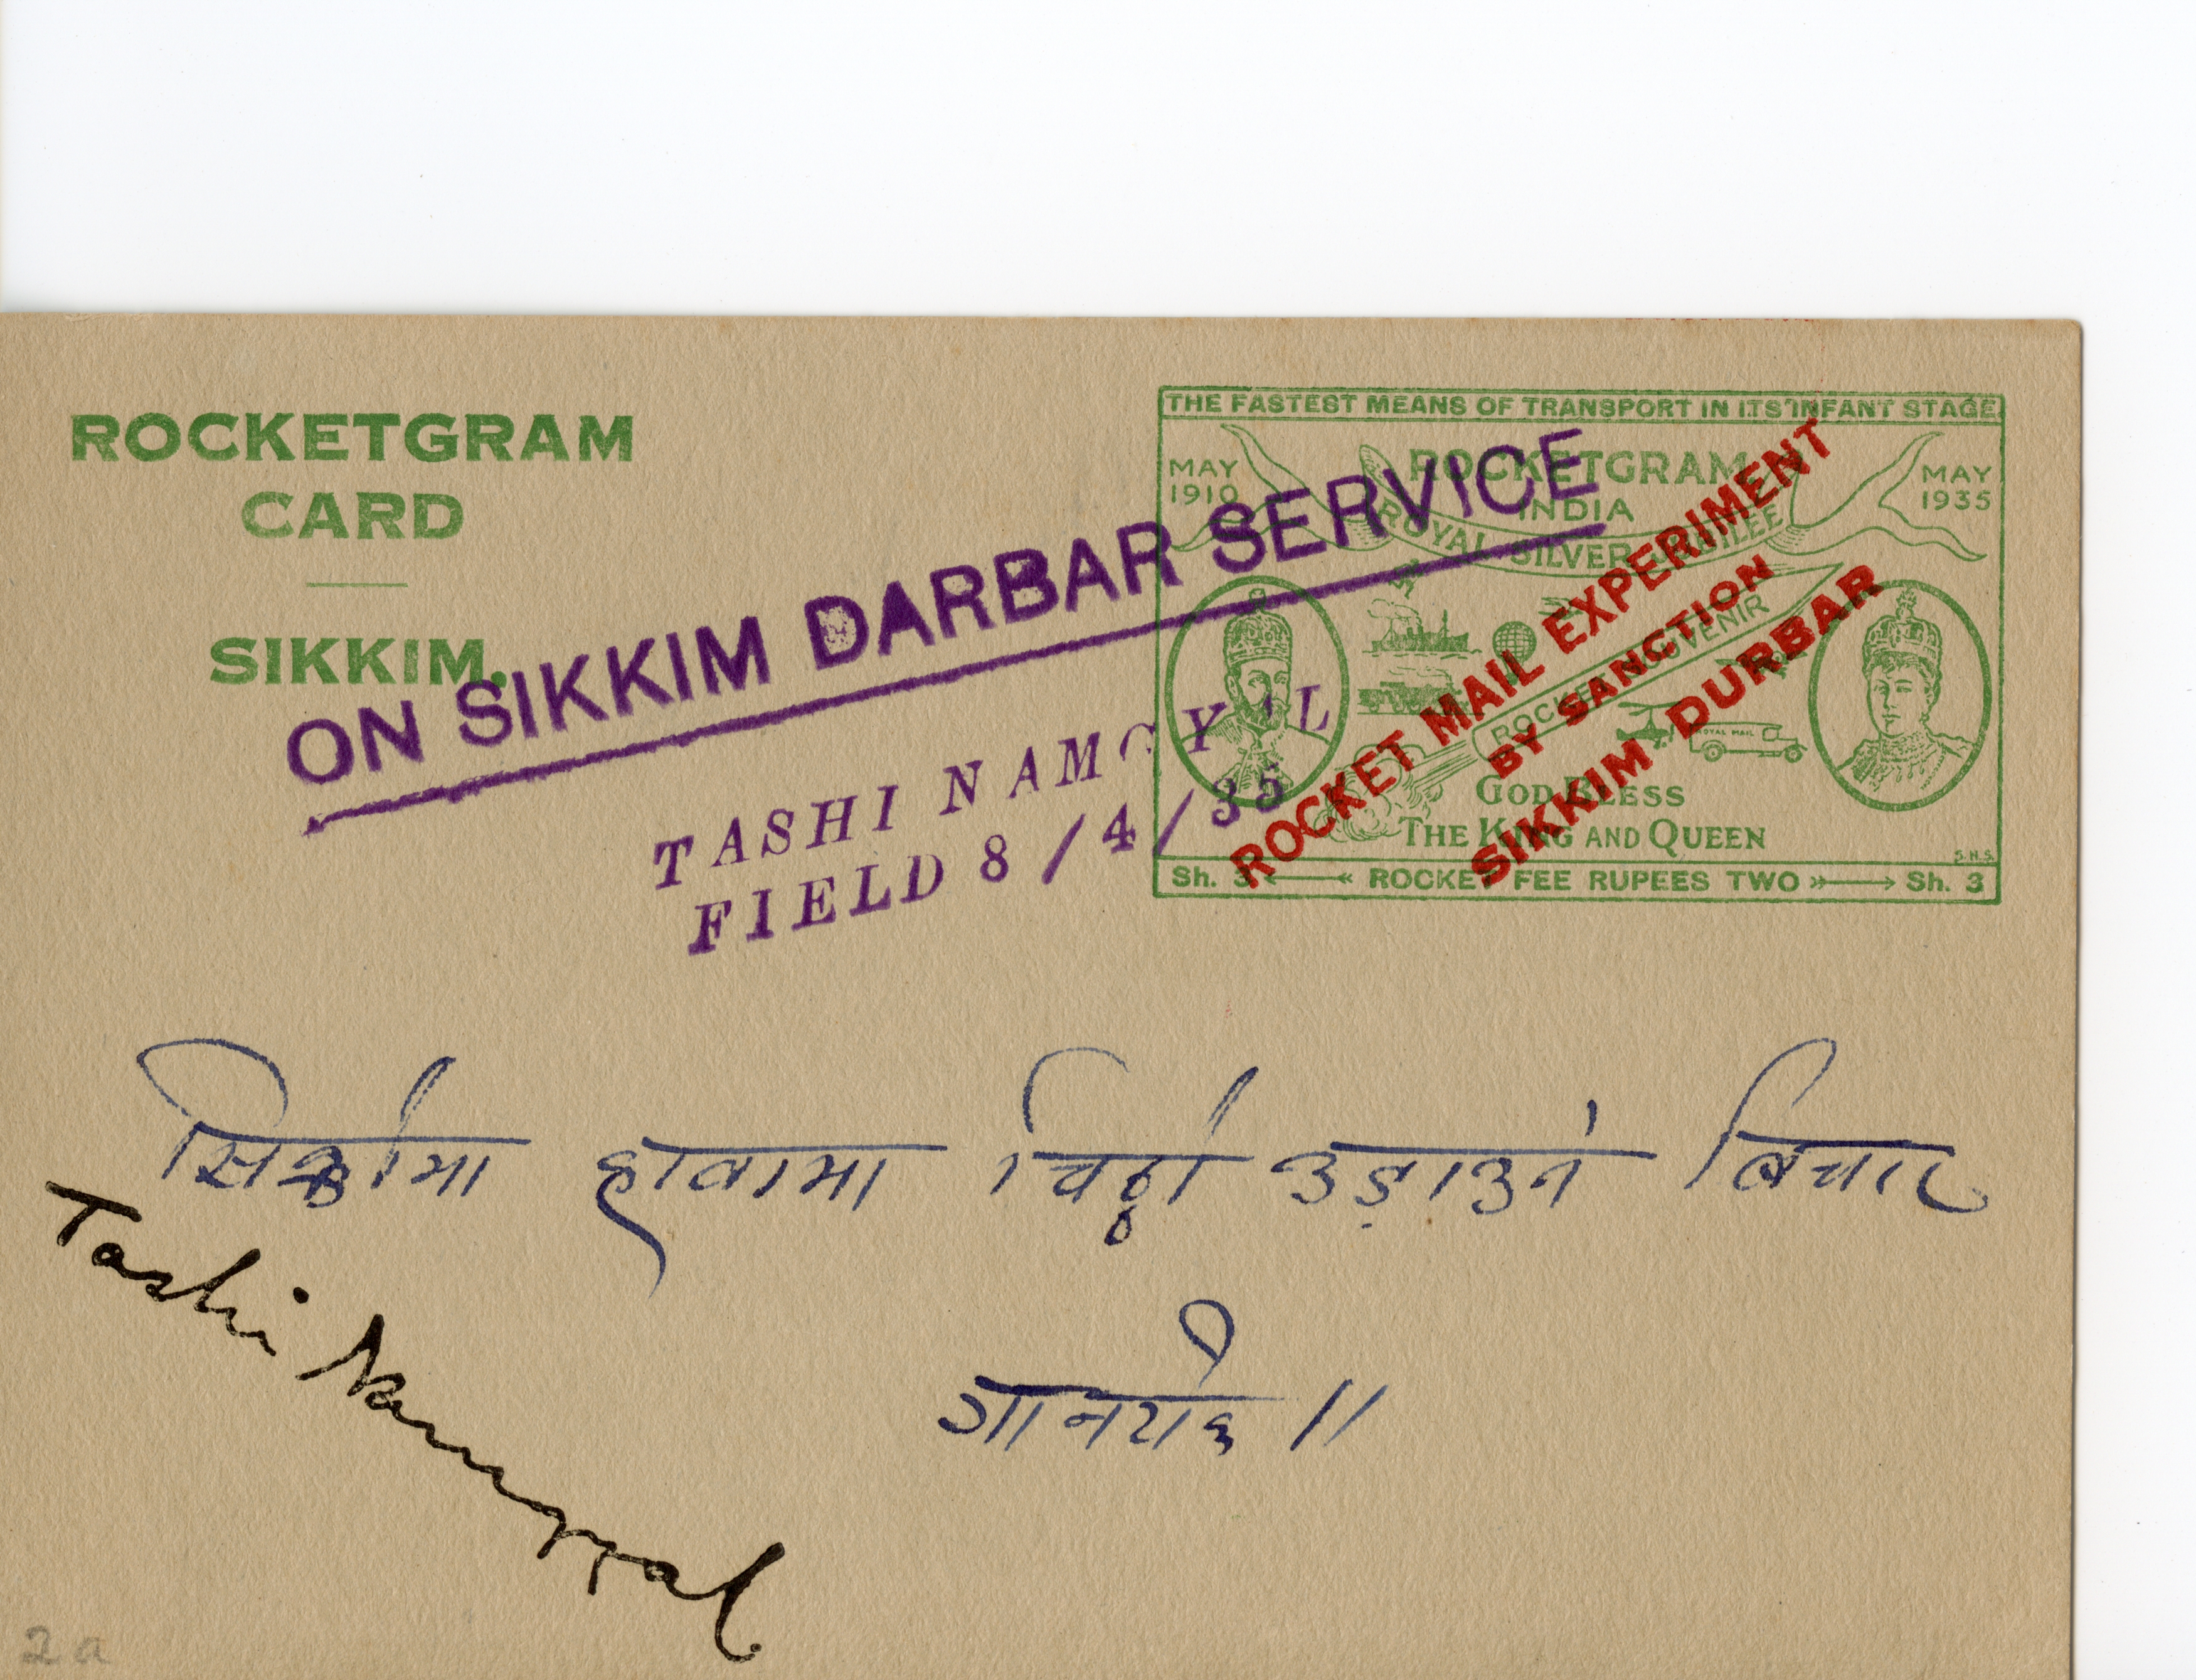 ROCKETGRAM
CARD
SIKKIM.
ON SIKKIM DARBAR SERVICE
TASHI NAMGYAL
FIELD 8/4/35
THE FASTEST MEANS OF TRANSPORT IN ITS INFANT STAGE
MAY
1910
ROCKETGRAM
INDIA
MAY
1935
ROYAL SILVER JUBILEE
ROCKET SOUVENIR
ROYAL MAIL
GOD BLESS
THE KING AND QUEEN
S.H.S.
Sh. 3 ROCKET FEE RUPEES TWO Sh. 3
ROCKET MAIL EXPERIMENT
BY SANCTION
SIKKIM DURBAR
हावामा चिठ्ठी उड़ाउने बिचार
Tashi Namgyal
2a